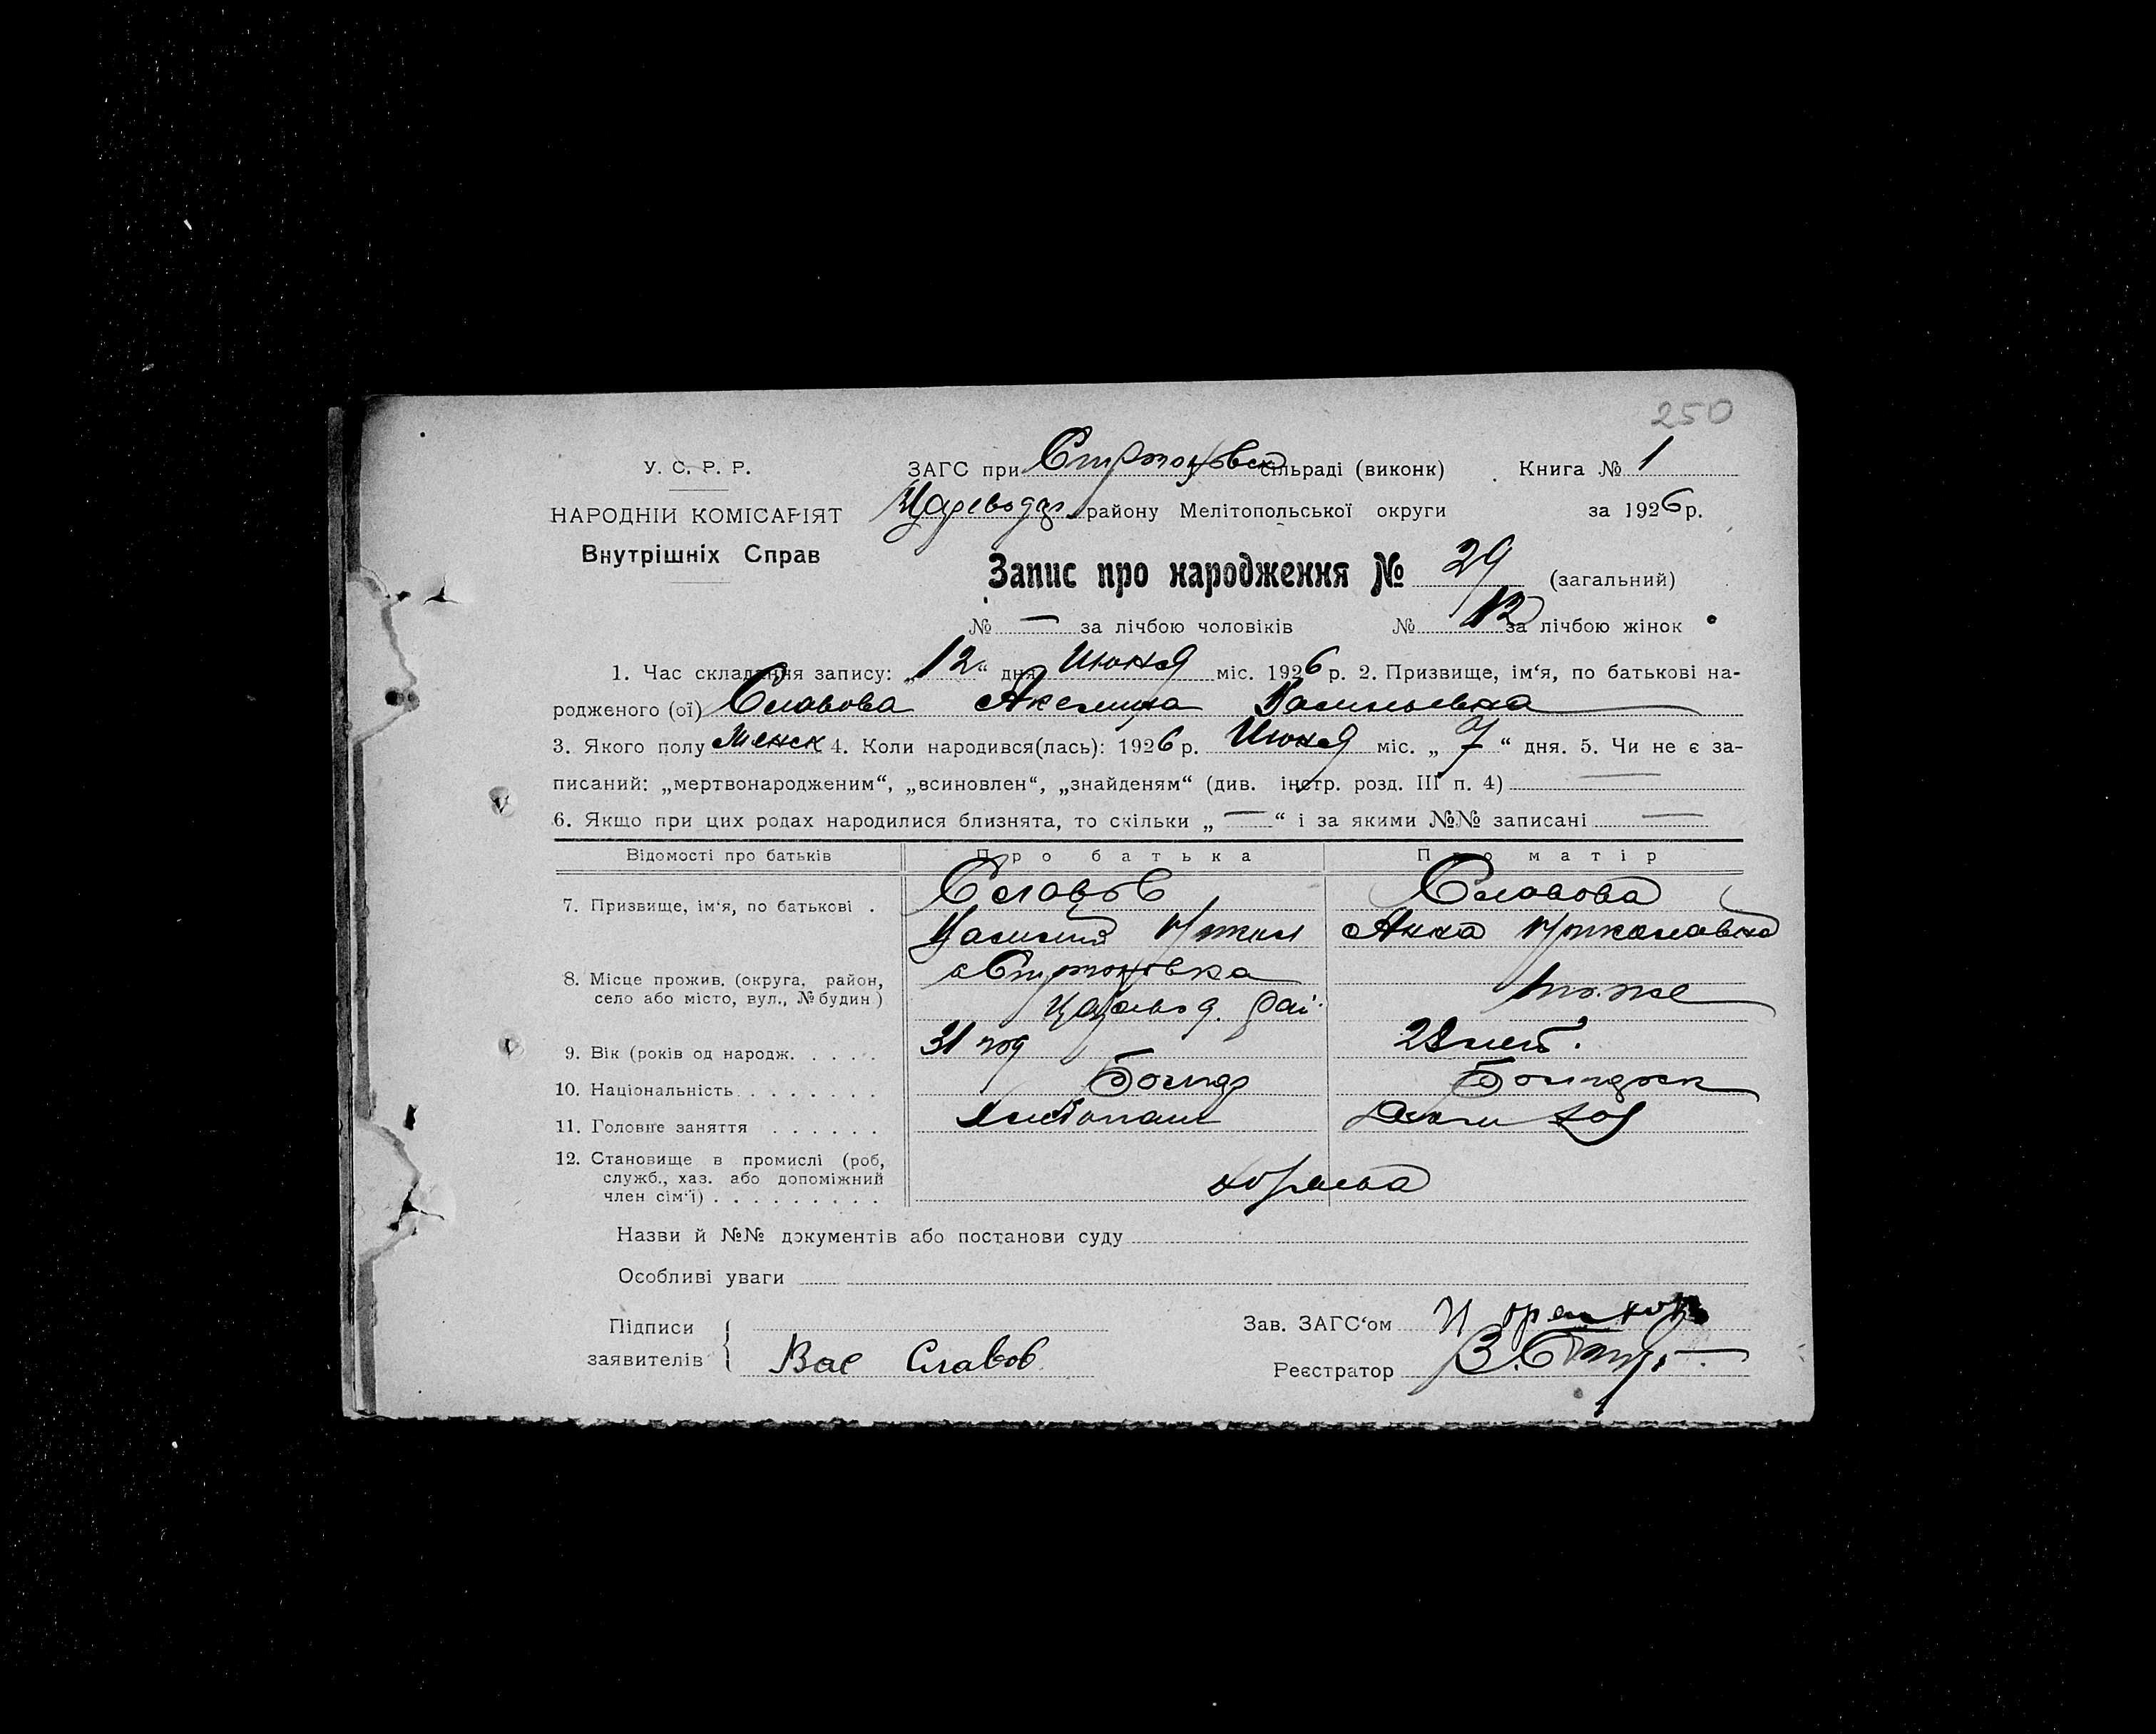 250
У. С. Р. Р.
НАРОДНІЙ КОМІСАРІЯТ
Внутрішніх Справ
ЗАГС при сільраді (виконк) Книга № 1
району Мелітопольської округи за 1926 р.
Запис про народження № 29 (загальний)
№ — за лічбою чоловіків № 12 за лічбою жінок
1. Час складання запису: „12“ дня Июня міс. 1926 р. 2. Призвище, ім‘я, по батькові на-
родженого (ої) Славова Васильевна
3. Якого полу Женск 4. Коли народився(лась): 1926 р. Июня міс. „ 7 “ дня. 5. Чи не є за-
писаний: „мертвонародженим“, „всиновлен“, „знайденям“ (див. інстр. розд. III п. 4) —
6. Якщо при цих родах народилися близнята, то скільки „ — “ і за якими №№ записані —
Відомості про батьків Про батька Про матір
7. Призвище, ім‘я, по батькові . Славов Славова
Василий Анна Николаевна
8. Місце прожив. (округа, район,
село або місто, вул., № будин) тоже
9. Вік (років од народж. . . . . 31 год 28 лет.
10. Національність . . . . . . . Болгар
11. Головне заняття . . . . . . Хлебопаш
12. Становище в промислі (роб,
служб., хаз. або допоміжний
член сім‘ї) . . . . . . . . .
Назви й №№ документів або постанови суду
Особливі уваги
Підписи
заявителів Вас Славов
Зав. ЗАГС‘ом
Реєстратор